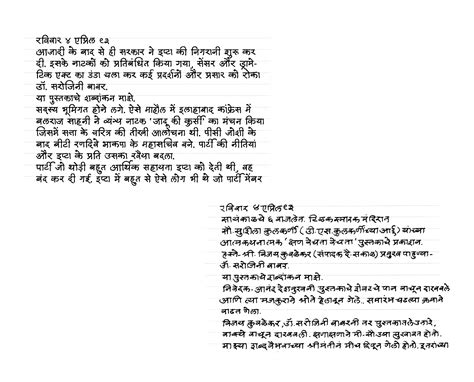 रविवार ४ एप्रिल ९३
आजादी के बाद से ही सरकार ने इप्टा की निगरानी शुरू कर
दी. इसके नाटकों को प्रतिबंधित किया गया, सेंसर और ड्रामे-
टिक एक्ट का डंडा चला कर कई प्रदर्शनों और प्रसार को रोका
डॉ. सरोजिनी बाबर.
या पुस्तकाचे शब्दांकन माझे.
सदस्य भूमिगत होने लगे. ऐसे माहौल में इलाहाबाद कांफ्रेंस में
बलराज साहनी ने व्यंग्य नाटक 'जादू की कुर्सी' का मंचन किया
जिसमें सत्ता के चरित्र की तीखी आलोचना थी. पीसी जोशी के
बाद बीटी रणदिवे भाकपा के महासचिव बने. पार्टी की नीतियां
और इप्टा के प्रति उसका रवैया बदला.
पार्टी जो थोड़ी बहुत आर्थिक सहायता इप्टा को देती थी, वह
बंद कर दी गई. इप्टा में बहुत से ऐसे लोग भी थे जो पार्टी मेंबर
रविवार ४ एप्रिल ९३
सायंकाळचे ६ वाजलेत. टिळक स्मारक मंदिरात
सौ. सुशीला कुलकर्णी (डी.एस.कुलकर्णींच्या आई) यांच्या
आत्मकथनात्मक 'क्षण वेचता वेचता' पुस्तकाचे प्रकाशन.
हस्ते- श्री. विजय कुवळेकर (संपादक दै. सकाळ) प्रमुख पाहुण्या-
डॉ. सरोजिनी बाबर.
या पुस्तकाचे शब्दांकन माझे.
निवेदक- आनंद देशमुखनी पुस्तकाचे शेवटचे पान वाचून दाखवले
आणि त्या मजकुराने श्रोते हेलावून गेले. समारंभ चढत्या क्रमाने
वाढत गेला.
विजय कुवळेकर, डॉ. सरोजिनी बाबरनी तर पुस्तकातले उतारे,
वाक्ये वाचून दाखवली. क्षणाक्षणाने मी- सौख्य लुटावत होतो.
माझ्या शब्दवैभवाच्या श्रीमंतीने मीच दिपून गेलो होतो. इतरांच्या